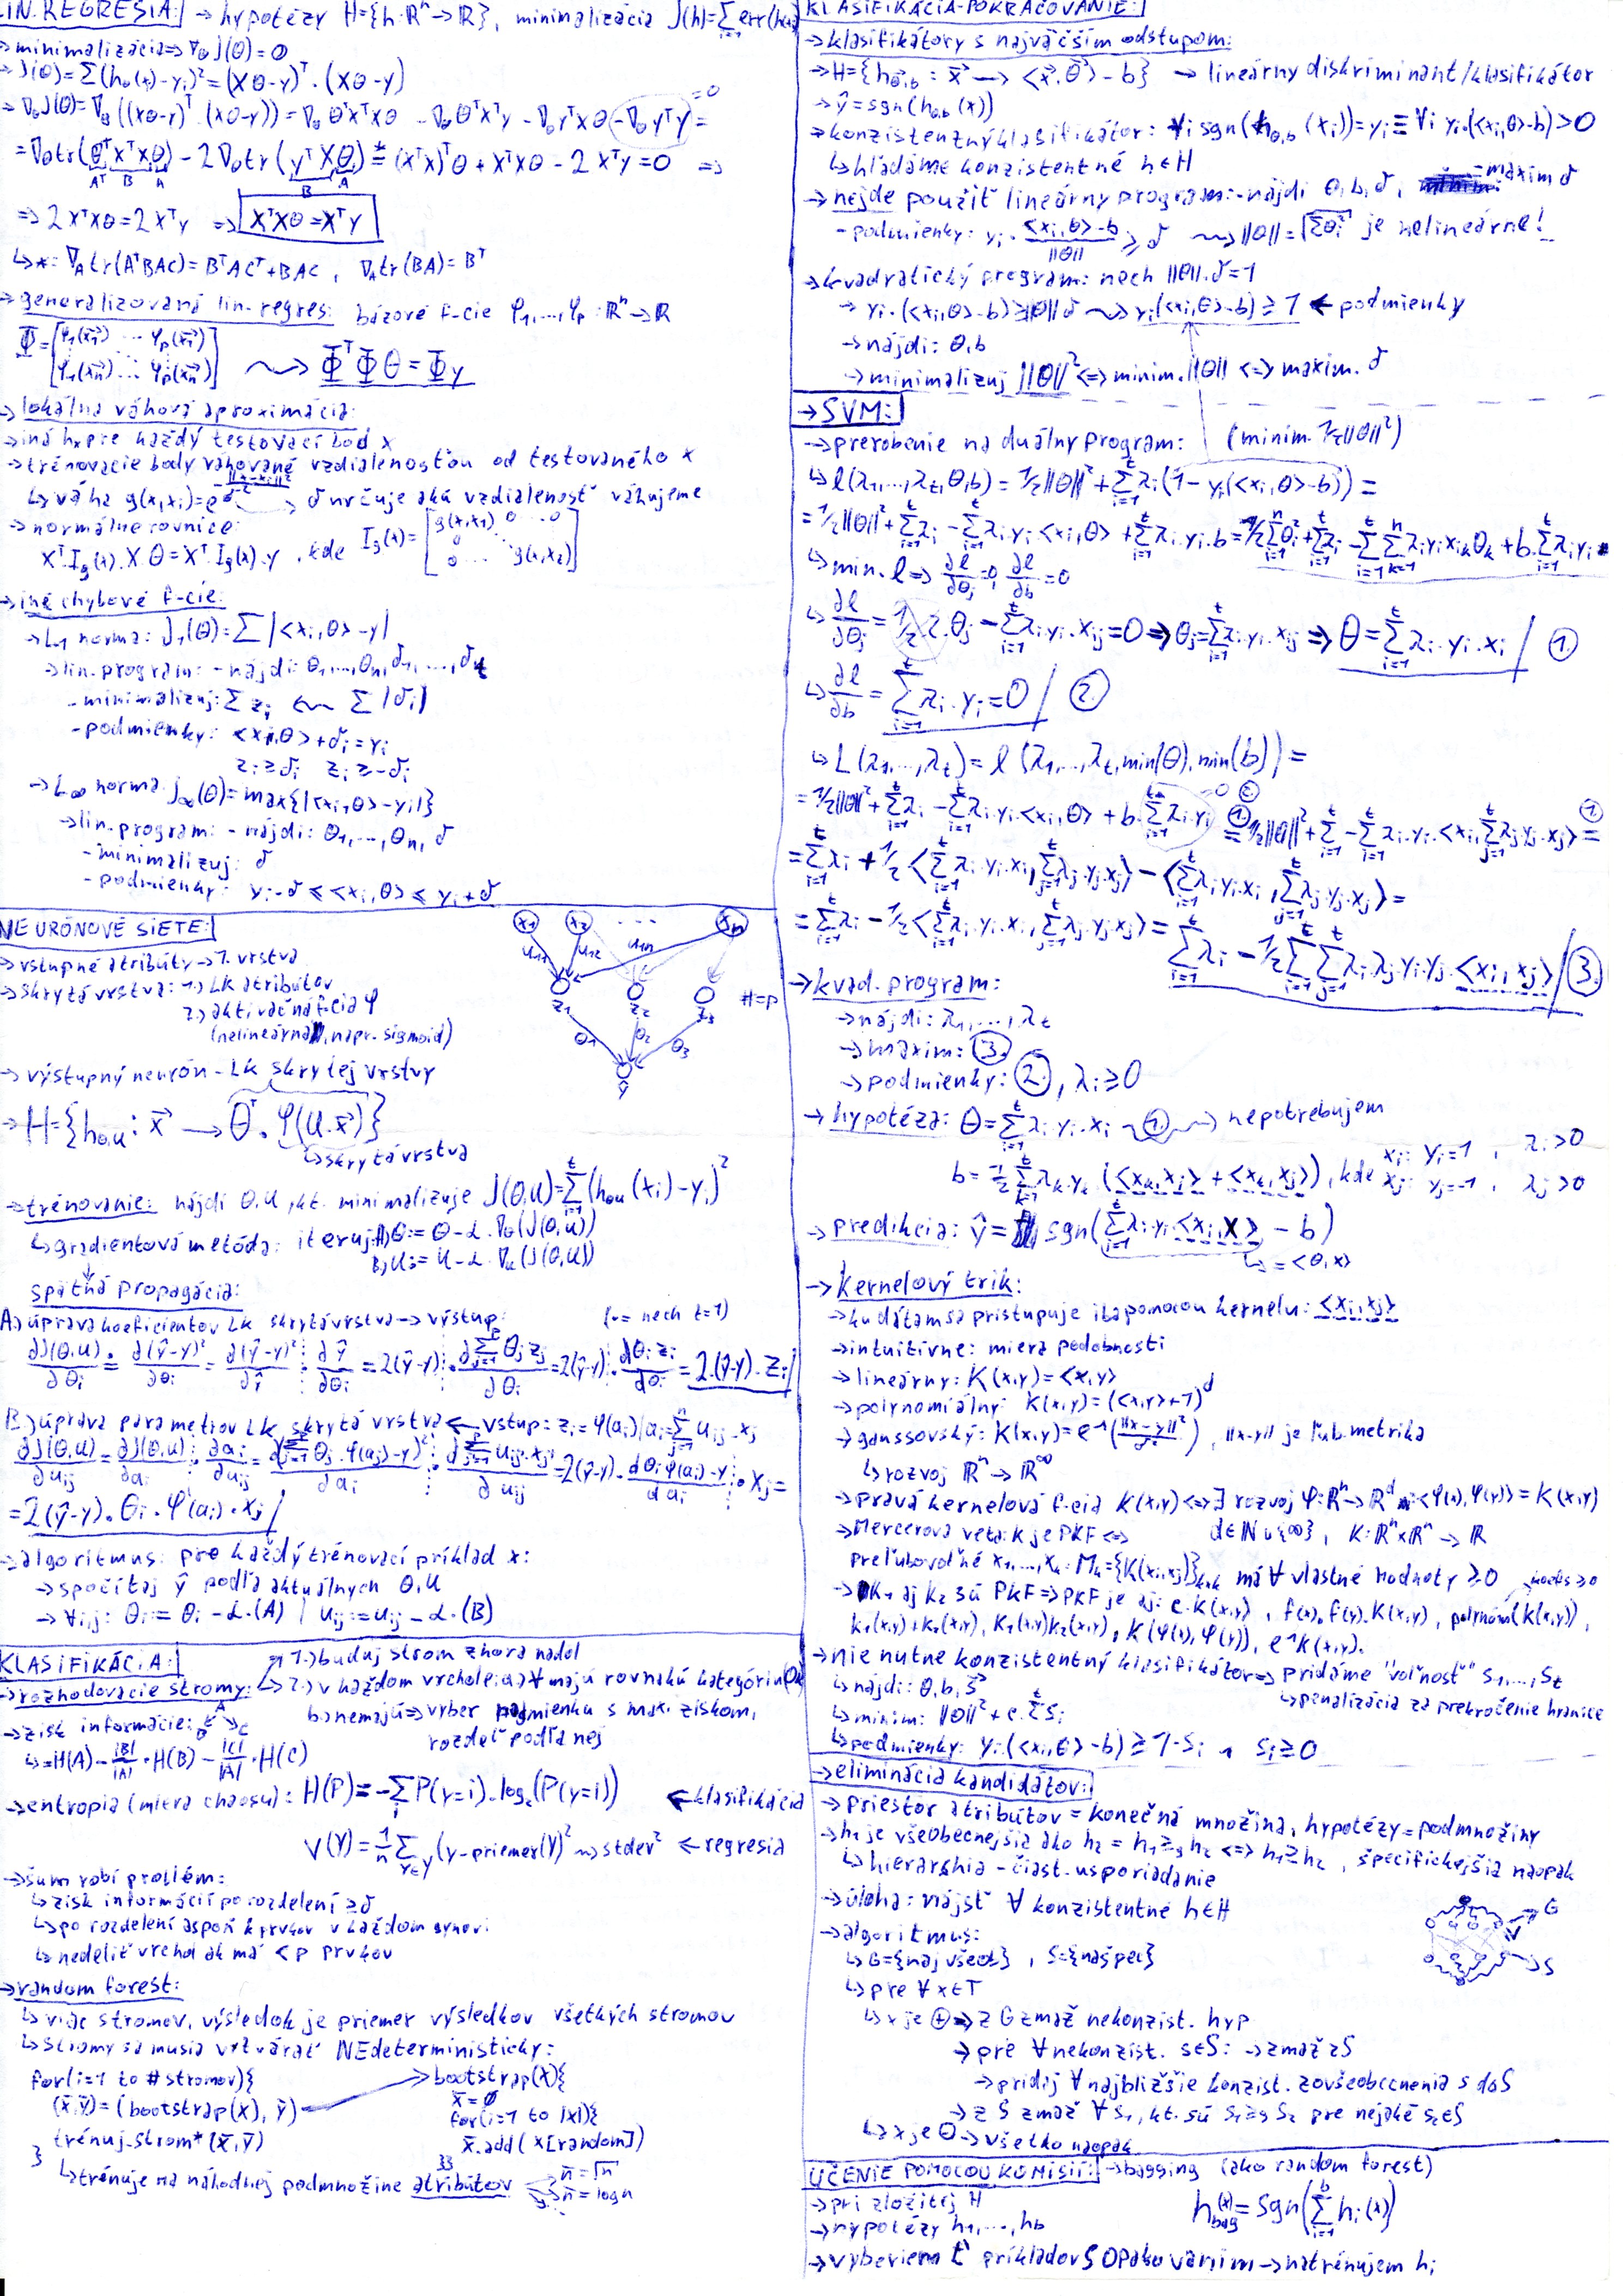 LIN. REGRESIA: → hypotézy H={h: ℝⁿ→ℝ}, minimalizácia J(h)=∑err(h(xᵢ
→minimalizácia⇒ ∇_θ J(θ)=0
→ J(θ)=∑(h_θ(xᵢ)-yᵢ)²=(Xθ-y)ᵀ.(Xθ-y)
→ ∇_θJ(θ)=∇_θ((Xθ-y)ᵀ.(Xθ-y))=∇_θ θᵀXᵀXθ -∇_θ θᵀXᵀy -∇_θ yᵀXθ -∇_θ yᵀy =0 =
=∇_θ tr(θᵀXᵀXθ) - 2∇_θ tr(yᵀXθ) ≛ (XᵀX)ᵀθ + XᵀXθ - 2Xᵀy=0 ⇒
Aᵀ B A B A
⇒ 2XᵀXθ=2Xᵀy ⇒ XᵀXθ=Xᵀy
↳*: ∇_A tr(AᵀBAC)=BᵀACᵀ+BAC, ∇_A tr(BA)=Bᵀ
→generalizovaná lin. regres: bázové f-cie φ₁,...,φₚ: ℝⁿ→ℝ
Φ=[φ₁(x₁) ... φₚ(x₁)
φ₁(xₙ) ... φₚ(xₙ)] ⇝ ΦᵀΦθ=Φy
→lokálna váhová aproximácia:
→iná hₓ pre každý testovací bod x
→trénovacie body váhované vzdialenosťou od testovaného x
↳váha g(x,xᵢ)=e^(||x-xᵢ||²/σ²) → σ určuje akú vzdialenosť váhujeme
→normálne rovnice:
Xᵀ.I_g(x).X θ=Xᵀ.I_g(x).y, kde I_g(x)=[g(x,x₁) 0 ...0
0
0 ... g(x,x₂)]
→iné chybové f-cie:
→L₁ norma: J₁(θ)=∑|<xᵢ,θ>-y|
→lin.program: -nájdi: θ₁,...,θₙ,δ₁,...,δₜ
-minimalizuj: ∑zᵢ ⇜ ∑|δᵢ|
-podmienky: <xᵢ,θ>+δᵢ=yᵢ
zᵢ≥δᵢ zᵢ≥-δᵢ
→L∞ norma J∞(θ)=max{|<xᵢ,θ>-yᵢ|}
→lin.program: -nájdi: θ₁,...,θₙ,δ
-minimalizuj: δ
-podmienky: yᵢ-δ ≤ <xᵢ,θ> ≤ yᵢ+δ
NEURÓNOVÉ SIETE:
→vstupné atribúty→1. vrstva
→skrytá vrstva: 1.) LK atribútov
2.) aktivačná f-cia φ
(nelineárna, napr. sigmoid)
→ výstupný neurón - LK skrytej vrstvy
x₁ x₂ ... xₙ
u₁₁ u₁₂ u₁ₙ
z₁ z₂ z₃ #=p
θ₁ θ₂ θ₃
ŷ
→ H={h_θ,u: x → θᵀ.φ(U.x)}
↳skrytá vrstva
→trénovanie: nájdi θ,U, kt. minimalizuje J(θ,U)=∑(h_θu(xᵢ)-yᵢ)²
↳gradientová metóda: iteruj A) θ:= θ-α.∇_θ(J(θ,U))
B) U:= U-α.∇_u(J(θ,U))
spätná propagácia:
A.) úprava koeficientov LK skrytá vrstva→výstup: (nech t=1)
∂J(θ,U)/∂θᵢ = ∂(ŷ-y)²/∂θᵢ = ∂(ŷ-y)²/∂ŷ . ∂ŷ/∂θᵢ = 2(ŷ-y).∂∑θⱼzⱼ/∂θᵢ = 2(ŷ-y).∂θᵢzᵢ/∂θᵢ = 2.(ŷ-y).zᵢ
B.) úprava parametrov LK skrytá vrstva←vstup: zᵢ=φ(aᵢ) | aᵢ=∑uᵢⱼ.xⱼ
∂J(θ,U)/∂uᵢⱼ = ∂J(θ,U)/∂aᵢ . ∂aᵢ/∂uᵢⱼ = ∂(∑θⱼ.φ(aⱼ)-y)²/∂aᵢ . ∂∑uᵢⱼ.xⱼ/∂uᵢⱼ = 2(ŷ-y).∂θᵢφ(aᵢ)-y/∂aᵢ . xⱼ=
=2(ŷ-y).θᵢ.φ'(aᵢ).xⱼ
→algoritmus: pre každý trénovací príklad x:
→spočítaj ŷ podľa aktuálnych θ,U
→∀i,j: θᵢ:= θᵢ-α.(A) | uᵢⱼ:=uᵢⱼ-α.(B)
KLASIFIKÁCIA:
→rozhodovacie stromy: 1.) buduj strom zhora nadol
2.) v každom vrchole: a.) ∀ majú rovnakú kategóriu (OK)
b.) nemajú⇒vyber podmienku s max. ziskom,
rozdeľ podľa nej
→zisk informácie: A B C
↳=H(A)-|B|/|A|.H(B)-|C|/|A|.H(C)
→entropia (miera chaosu): H(P)=-∑P(y=i).log₂(P(y=i)) ←klasifikácia
V(Y)=1/n ∑(y-priemer(Y))² ⇝ stdev² ←regresia
→šum robí problém:
↳zisk informácií po rozdelení ≥δ
↳po rozdelení aspoň k prvkov v každom synovi
↳nedeliť vrchol ak má < p prvkov
→random forest:
↳viac stromov, výsledok je priemer výsledkov všetkých stromov
↳stromy sa musia vytvárať NEdeterministicky:
for(i=1 to #stromov){
(x̄,ȳ)=(bootstrap(x),ȳ)
trénuj-strom*(x̄,ȳ)
}
bootstrap(x){
x̄=∅
for(i=1 to |x|){
x̄.add(x[random])
}}
↳trénuje na náhodnej podmnožine atribútov n̄=√n
n̄=log n
KLASIFIKÁCIA-POKRAČOVANIE:
→klasifikátory s najväčším odstupom:
→H={h_θ,b: x → <x,θ>-b} → lineárny diskriminant/klasifikátor
→ŷ=sgn(h_θ,b(x))
→konzistentný klasifikátor: ∀i sgn(h_θ,b(xᵢ))=yᵢ ≡ ∀i yᵢ.(<xᵢ,θ>-b)>0
↳hľadáme konzistentné h∈H
→nejde použiť lineárny program: -nájdi θ,b,δ, maxim δ
-podmienky: yᵢ.(<xᵢ,θ>-b)/||θ|| ≥ δ ⇝ ||θ||=√∑θᵢ² je nelineárne!
→kvadratický program: nech ||θ||.δ=1
→ yᵢ.(<xᵢ,θ>-b)≥||θ||δ ⇝ yᵢ(<xᵢ,θ>-b)≥1 ← podmienky
→nájdi: θ,b
→minimalizuj ||θ||² ⇔ minim. ||θ|| ⇔ maxim. δ
→SVM:
→prerobenie na duálny program: (minim. 1/2||θ||²)
↳ℓ(λ₁,...,λₜ,θ,b)=1/2||θ||²+∑λᵢ(1-yᵢ(<xᵢ,θ>-b))=
=1/2||θ||²+∑λᵢ-∑λᵢ.yᵢ<xᵢ,θ>+∑λᵢ.yᵢ.b=1/2∑θᵢ²+∑λᵢ-∑∑λᵢyᵢxᵢₖθₖ+b.∑λᵢyᵢ
↳min. ℓ⇒ ∂ℓ/∂θⱼ=0, ∂ℓ/∂b=0
↳∂ℓ/∂θⱼ=1/2.2.θⱼ-∑λᵢ.yᵢ.xᵢⱼ=0⇒θⱼ=∑λᵢ.yᵢ.xᵢⱼ⇒θ=∑λᵢ.yᵢ.xᵢ ①
↳∂ℓ/∂b=∑λᵢ.yᵢ=0 ②
↳L(λ₁,...,λₜ)=ℓ(λ₁,...,λₜ,min(θ),min(b))=
=1/2||θ||²+∑λᵢ-∑λᵢ.yᵢ.<xᵢ,θ>+b.∑λᵢyᵢ =0 ② =① 1/2||θ||²+∑λᵢ-∑λᵢ.yᵢ.<xᵢ,∑λⱼyⱼ.xⱼ> =①
=∑λᵢ+1/2<∑λᵢ.yᵢ.xᵢ,∑λⱼ.yⱼ.xⱼ>-<∑λᵢyᵢxᵢ,∑λⱼyⱼ.xⱼ>=
=∑λᵢ-1/2<∑λᵢ.yᵢ.xᵢ,∑λⱼyⱼxⱼ>=∑λᵢ-1/2∑∑λᵢλⱼyᵢyⱼ.<xᵢ,xⱼ> ③
→kvad. program:
→nájdi: λ₁,...,λₜ
→maxim: ③
→podmienky: ②, λᵢ≥0
→hypotéza: θ=∑λᵢ.yᵢ.xᵢ ① ⇝ nepotrebujem
b=1/2∑λₖ.yₖ(<xₖ,xᵢ>+<xₖ,xⱼ>), kde xᵢ: yᵢ=1, λᵢ>0
xⱼ: yⱼ=-1, λⱼ>0
→predikcia: ŷ= sgn(∑λᵢ.yᵢ.<xᵢ,x>-b)
↳=<θ,x>
→Kernelový trik:
→ku dátam sa pristupuje iba pomocou kernelu: <xᵢ,xⱼ>
→intuitívne: miera podobnosti
→lineárny: K(x,y)=<x,y>
→polynomiálny: K(x,y)=(<x,y>+1)^d
→gaussovský: K(x,y)=e^(||x-y||²/σ²), ||x-y|| je ľub. metrika
↳rozvoj ℝⁿ→ℝ^∞
→pravá kernelová f-cia K(x,y)⇔∃ rozvoj φ:ℝⁿ→ℝ^d : <φ(x),φ(y)>=K(x,y)
→Mercerova veta: K je PKF⇔ d∈ℕ∪{∞}, K:ℝⁿ×ℝⁿ→ℝ
pre ľubovoľné x₁,...,xₖ: Mₖ={K(xᵢ,xⱼ)}ₖₓₖ má ∀ vlastné hodnoty ≥0
→K₁ aj K₂ sú PKF⇒PKF je aj: c.K(x,y), f(x).f(y).K(x,y), polynóm(K(x,y)),
K₁(x,y)+K₂(x,y), K₁(x,y)K₂(x,y), K(φ(x),φ(y)), e^K(x,y).
→nie nutne konzistentný klasifikátor⇒ pridáme "voľnosť" s₁,...,sₜ
↳penalizácia za prekročenie hranice
↳nájdi: θ,b,s
↳minim: ||θ||²+c.∑sᵢ
↳podmienky: yᵢ.(<xᵢ,θ>-b)≥1-sᵢ, sᵢ≥0
→eliminácia kandidátov:
→priestor atribútov = konečná množina, hypotézy=podmnožiny
→h₁ je všeobecnejšia ako h₂ = h₁≥_g h₂ ⇔ h₁⊇h₂, špecifickejšia naopak
↳hierarchia - čiast. usporiadanie
→úloha: nájsť ∀ konzistentné h∈H
→algoritmus:
↳G={najvšeob}, S={najšpec}
G
S
↳pre ∀x∈T
↳x je ⊕⇒z G zmaž nekonzist. hyp
→pre ∀nekonzist. s∈S: →zmaž z S
→pridaj ∀najbližšie konzist. zovšeobecnenia s do S
→z S zmaž ∀s₁, kt. sú s₁≥_g s₂ pre nejaké s₂∈S
↳x je ⊖→všetko naopak
UČENIE POMOCOU KOMISIÍ: →bagging (ako random forest)
→pri zložitej H
h_bag(x)=sgn(∑hᵢ(x))
→hypotézy h₁,...,h_b
→vyberiem t príkladov S OPAKOVANÍM→natrénujem hᵢ